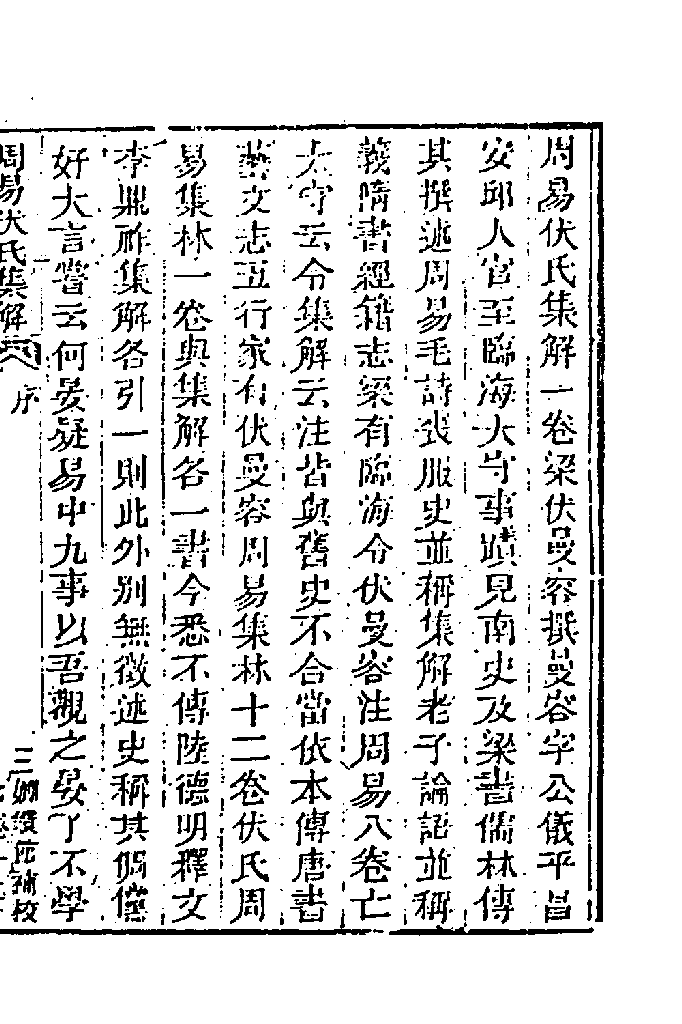 周易伏氏集解一卷梁伏曼容撰曼容字公儀平昌
安邱人官至臨海大守事蹟見南史及梁書儒林傳
其撰述周易毛詩喪服史並稱集解老子論語並稱
義隋書經籍志梁有臨海令伏曼容注周易八卷亡
大守云令集解云注皆與舊史不合當依本傳唐書
藝文志五行家有伏曼容周易集林十二卷伏氏周
易集林一卷與集解各一書今悉不傳陸德明釋文
李鼎祚集解各引一則此外别無徵述史稱其倜儻
好大言嘗云何晏疑易中九事以吾觀之晏了不學
周易伏氏集解 序 三 嫏嬛館補校